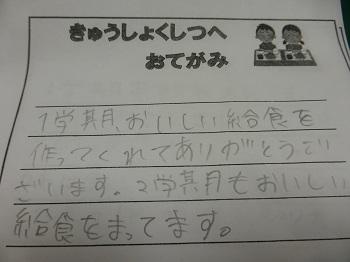 きゅうしょくしつへ
おてがみ
1学期、おいしい給食を
作ってくれてありがとうご
ざいます。2学期もおいしい
給食をまってます。